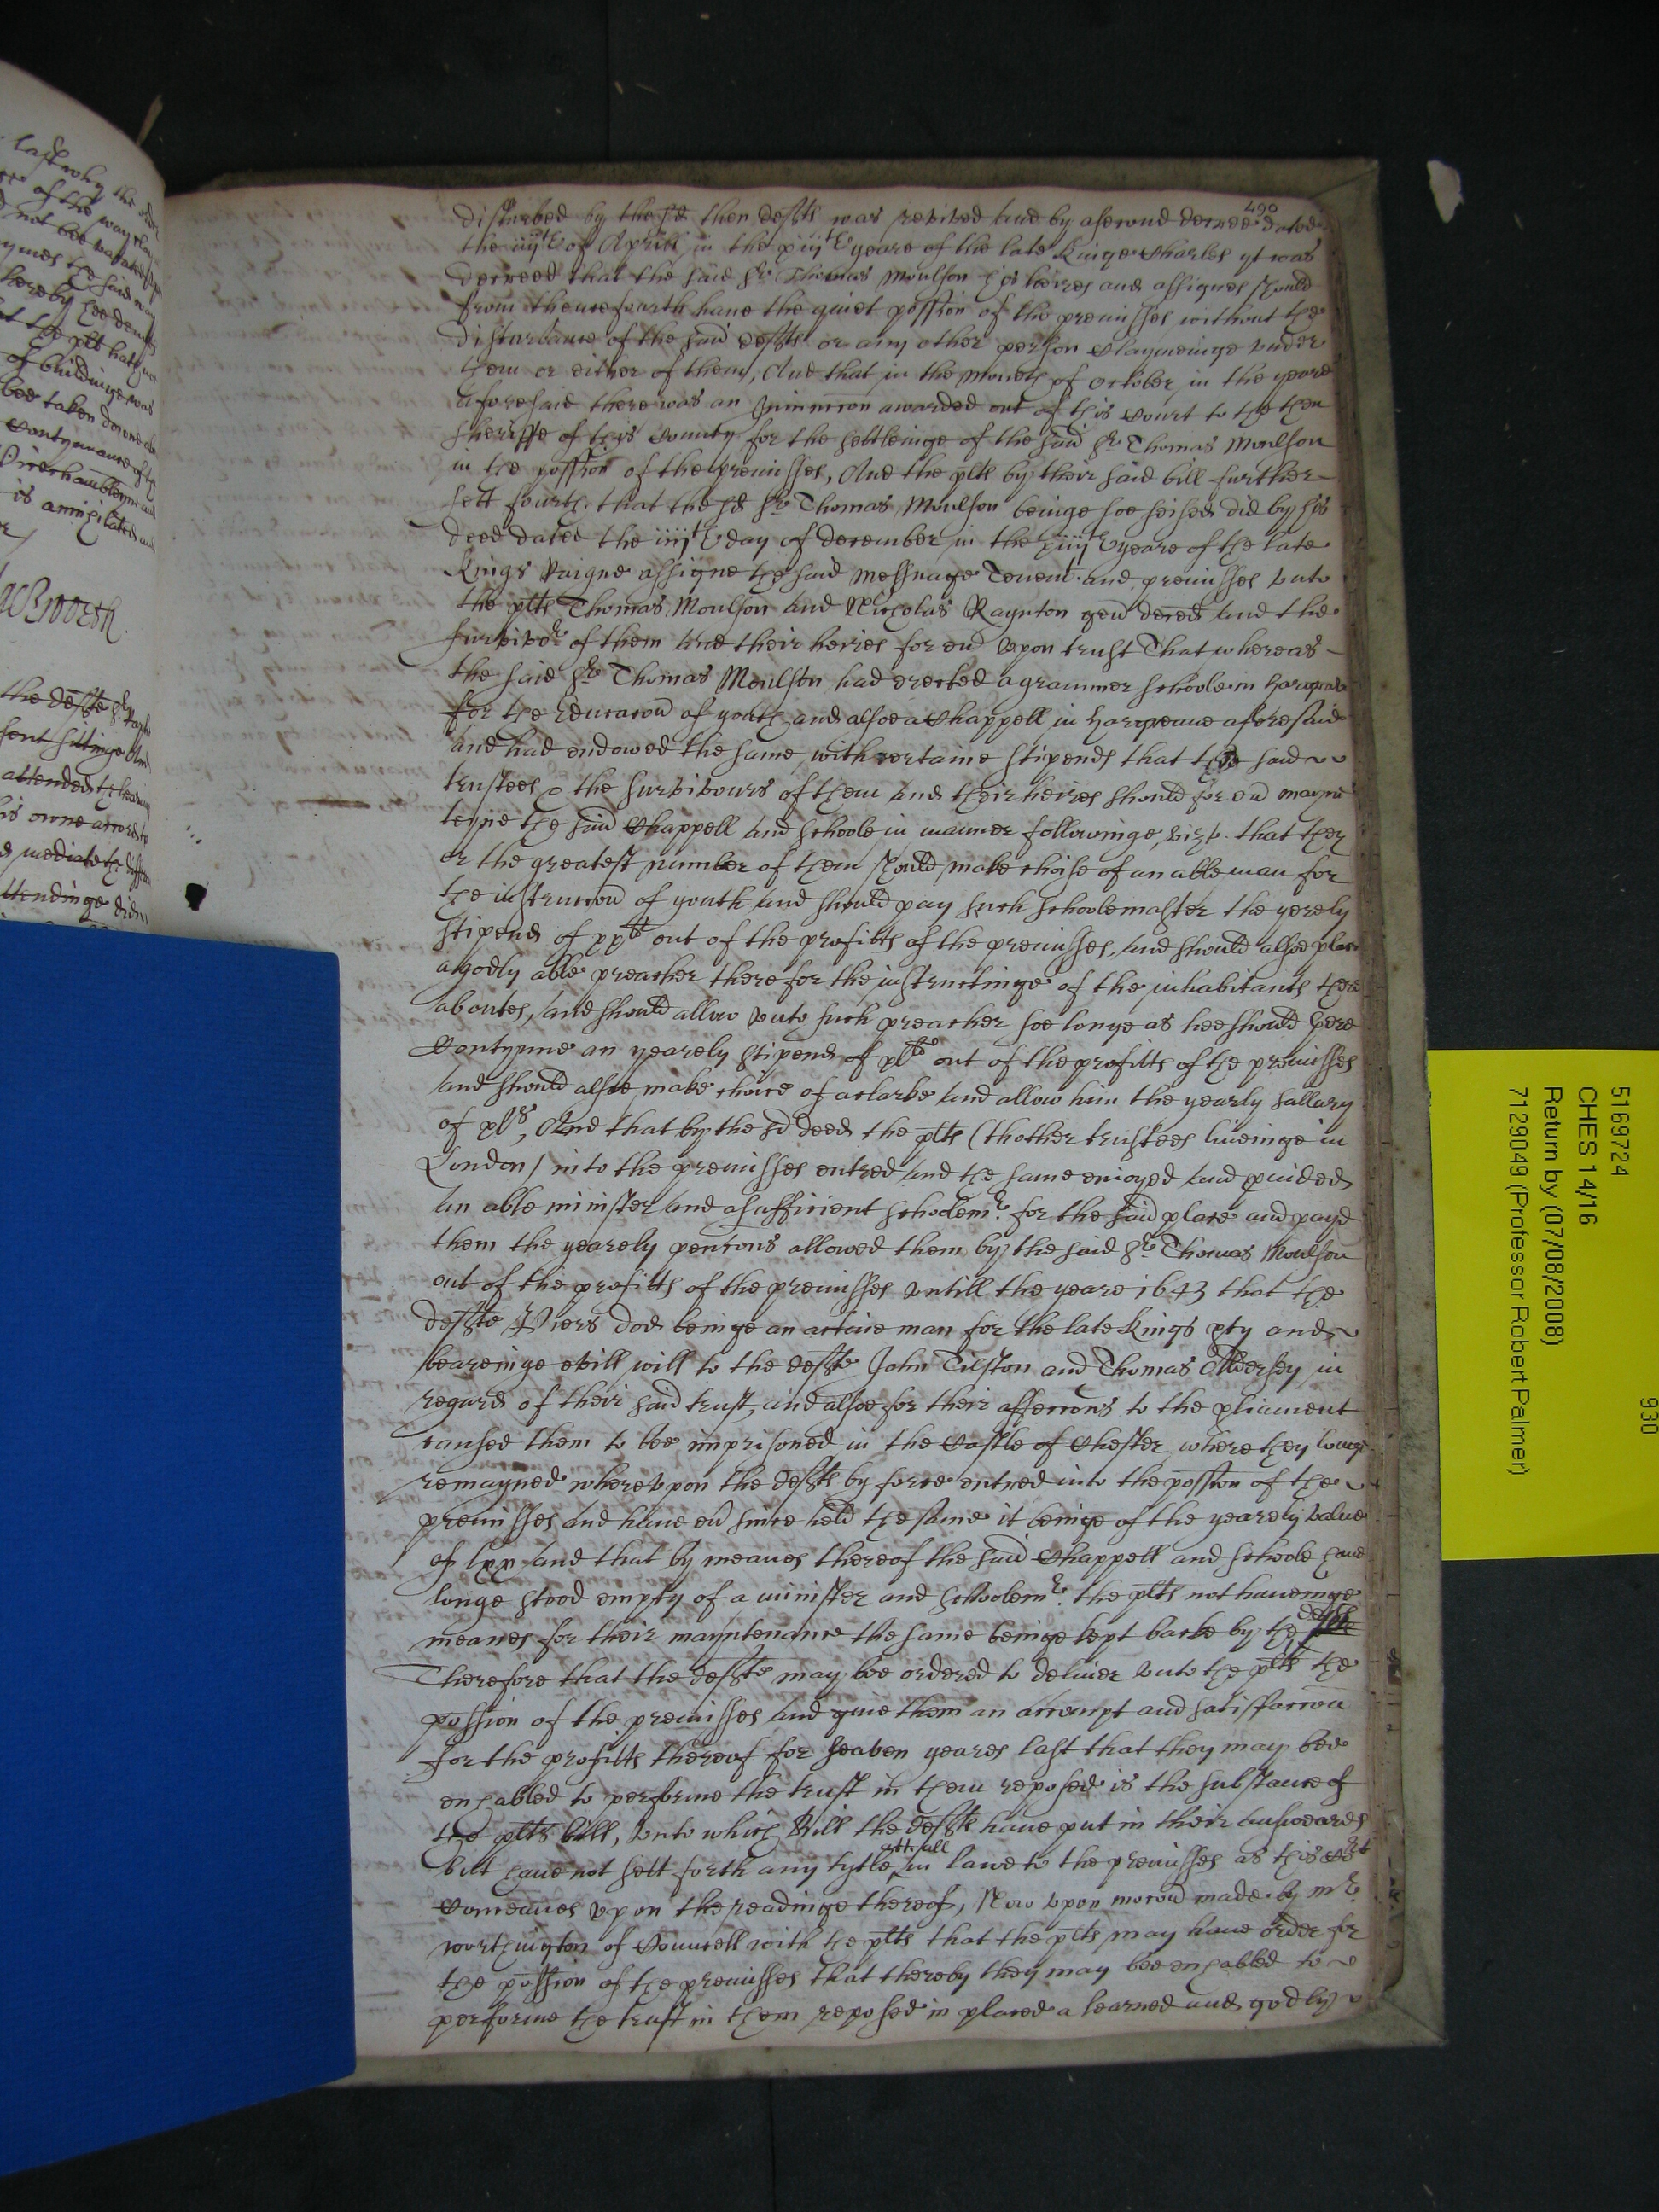 490
disturbed by the sd then defts was revived and by a second decree dated
the iiijth of Aprill in the xiijth yeare of the late Kinge Charles yt was
decreed that the said Sr Thomas Moulson his heires and assignes should
from thencefourth have the quiet possion of the premisses without the
disturbance of the said defts or any other person Claymeinge under
them or either of them, And that in the Moneth of October in the yeare
aforesaid there was an Iniunccon awarded out of this Court to the then
Sheriffe of this County for the settleinge of the said Sr Thomas Moulson
in the possion of the premisses, And the plts by their said bill further
sett fourth that the sd Sr Thomas Moulson beinge soe seised did by his
deed dated the iiijth day of december in the xiiijth yeare of the late
Kings Raigne assigne the said messuage Tenemt and premisses unto
the plts Thomas Moulson and Nicholas Raynton gent deced and the
survivor of them and their heires for ever upon trust That whereas
the said Sr Thomas Moulson had erected a grammer schoole in
for the educacon of youth and alsoe a Chappell in aforesaid
and had endowed the same with certaine stipends that the said
trustees & the survivours of them and their heires should for ever mayne
teyne the said Chappell and schoole in manner followinge, vizt. that they
or the greatest number of them should make choise of an able man for
the instruccon of youth and should pay such schoolemaster the yerely
stipend of xxli out of the profitts of the premisses, and should alsoe place
a godly able preacher there for the instructinge of the inhabitants there
aboutes, and should allow unto such preacher soe longe as hee should there
Contynue an yearely stipend of xlli out of the profitts of the premisses
and should alsoe make choice of a clarke and allow him the yearly sallary
of xls, And that by the sd deed the plts (thother trustees liveinge in
London) into the premisses entred and the same enioyed and pvided
an able minister and a sufficient schoolemr for the said place and payd
them the yearely pencons allowed them by the said Sr Thomas Moulson
out of the profitts of the premisses untill the yeare 1643 that the
defte Piers dod beinge an active man for the late Kings pty and
beareinge evill will to the John Tilston and Thomas Aldersey in
regard of their said trust, and alsoe for their affeccons to the pliament
caused them to bee imprisoned in the Castle of Chester where they longe
remayned whereupon the defts by force entred into the possion of the
premisses and have ever since held the same it beinge of the yearely value
of lxx and that by meanes thereof the said Chappell and schoole have
longe stood empty of a minister and schoolemr the plts not haveinge
meanes for their mayntenance the same beinge kept backe by the defts
Therefore that the defts may bee ordered to deliver unto the plts the
possion of the premisses and give them an accompt and satisfaccon
for the profitts thereof for seaven yeares last that they may bee
enhabled to performe the trust in them reposed is the substance of
the plts bill, unto which bill the defts have put in their answeares
but have not sett forth any tytle att all in lawe to the premisses as this Crt
Conceaves upon the readinge thereof, Now upon mocon made by mr
worthington of Councell with the plts that the plts may have order for
the possion of the premisses that thereby they may bee enhabled to
performe the trust in them reposed in placed a learned and godly
lastwhy the order
of the way
not bee
ymes the said way
hereby hee
the plt hath
of buildinge was
bee taken downe
Contynuance of
is anihilated and
the defte
attended the
his owne accord
mediate the
ttendinge
5169724
CHES 14/16
Return by (07/08/2008)
7129049 (Professor Robert Palmer)
930